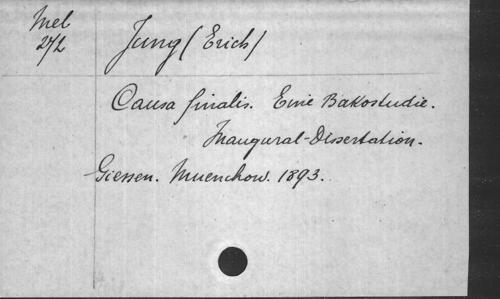 Mel
2/2
Jung (Erich)
Causa finalis. Eine Bakostudie.
Inaugural-Dissertation.
Giessen. Muenchow. 1893.